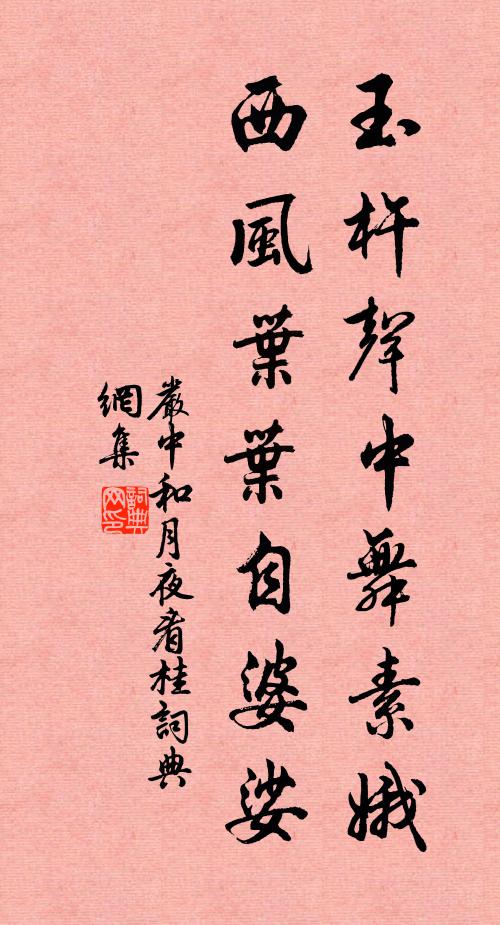 玉杵聲中舞素娥
西風葉葉自婆娑
嚴中和月夜看桂詞典
網集
詞典
网印